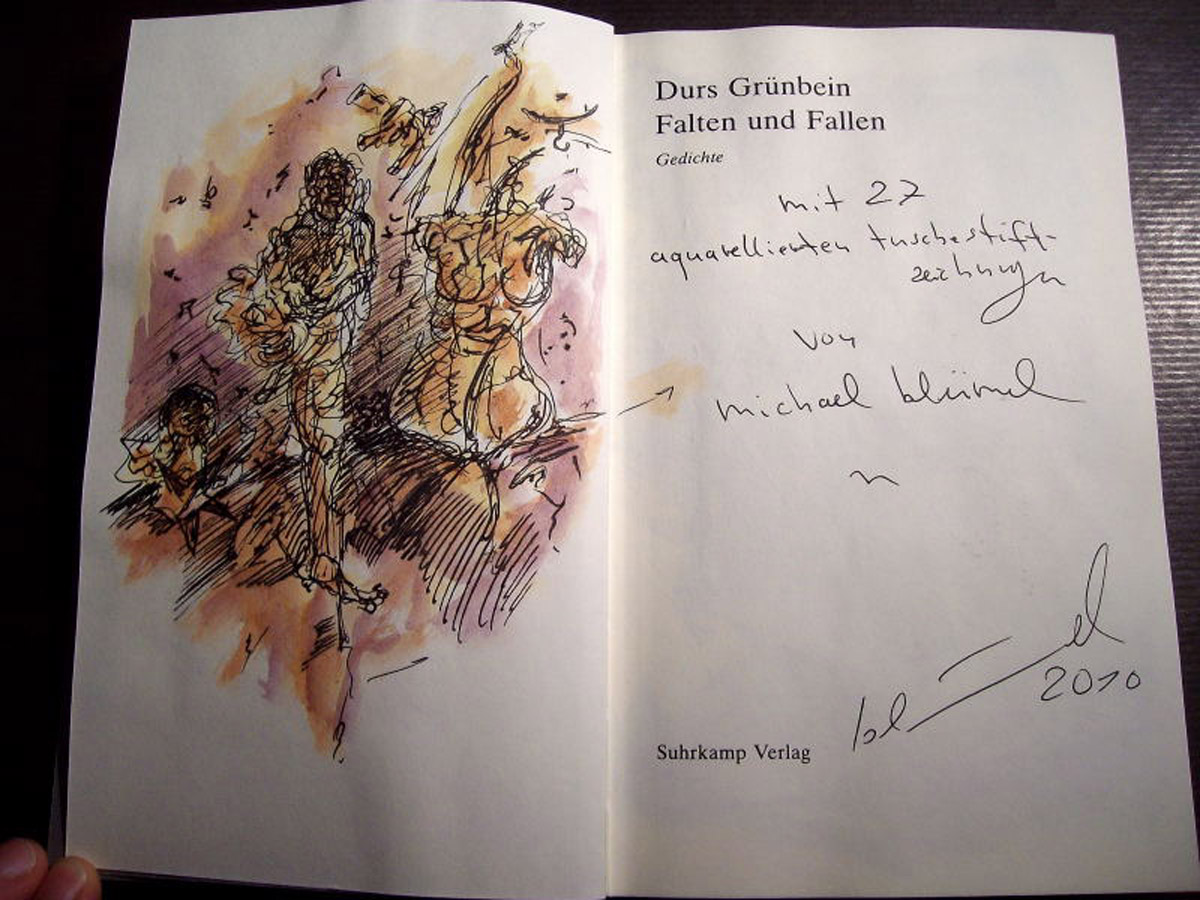 Durs Grünbein
Falten und Fallen
Gedichte
mit 27
aquarellierten tuschestift-
zeichnungen
von
michael blümel
2010
Suhrkamp Verlag